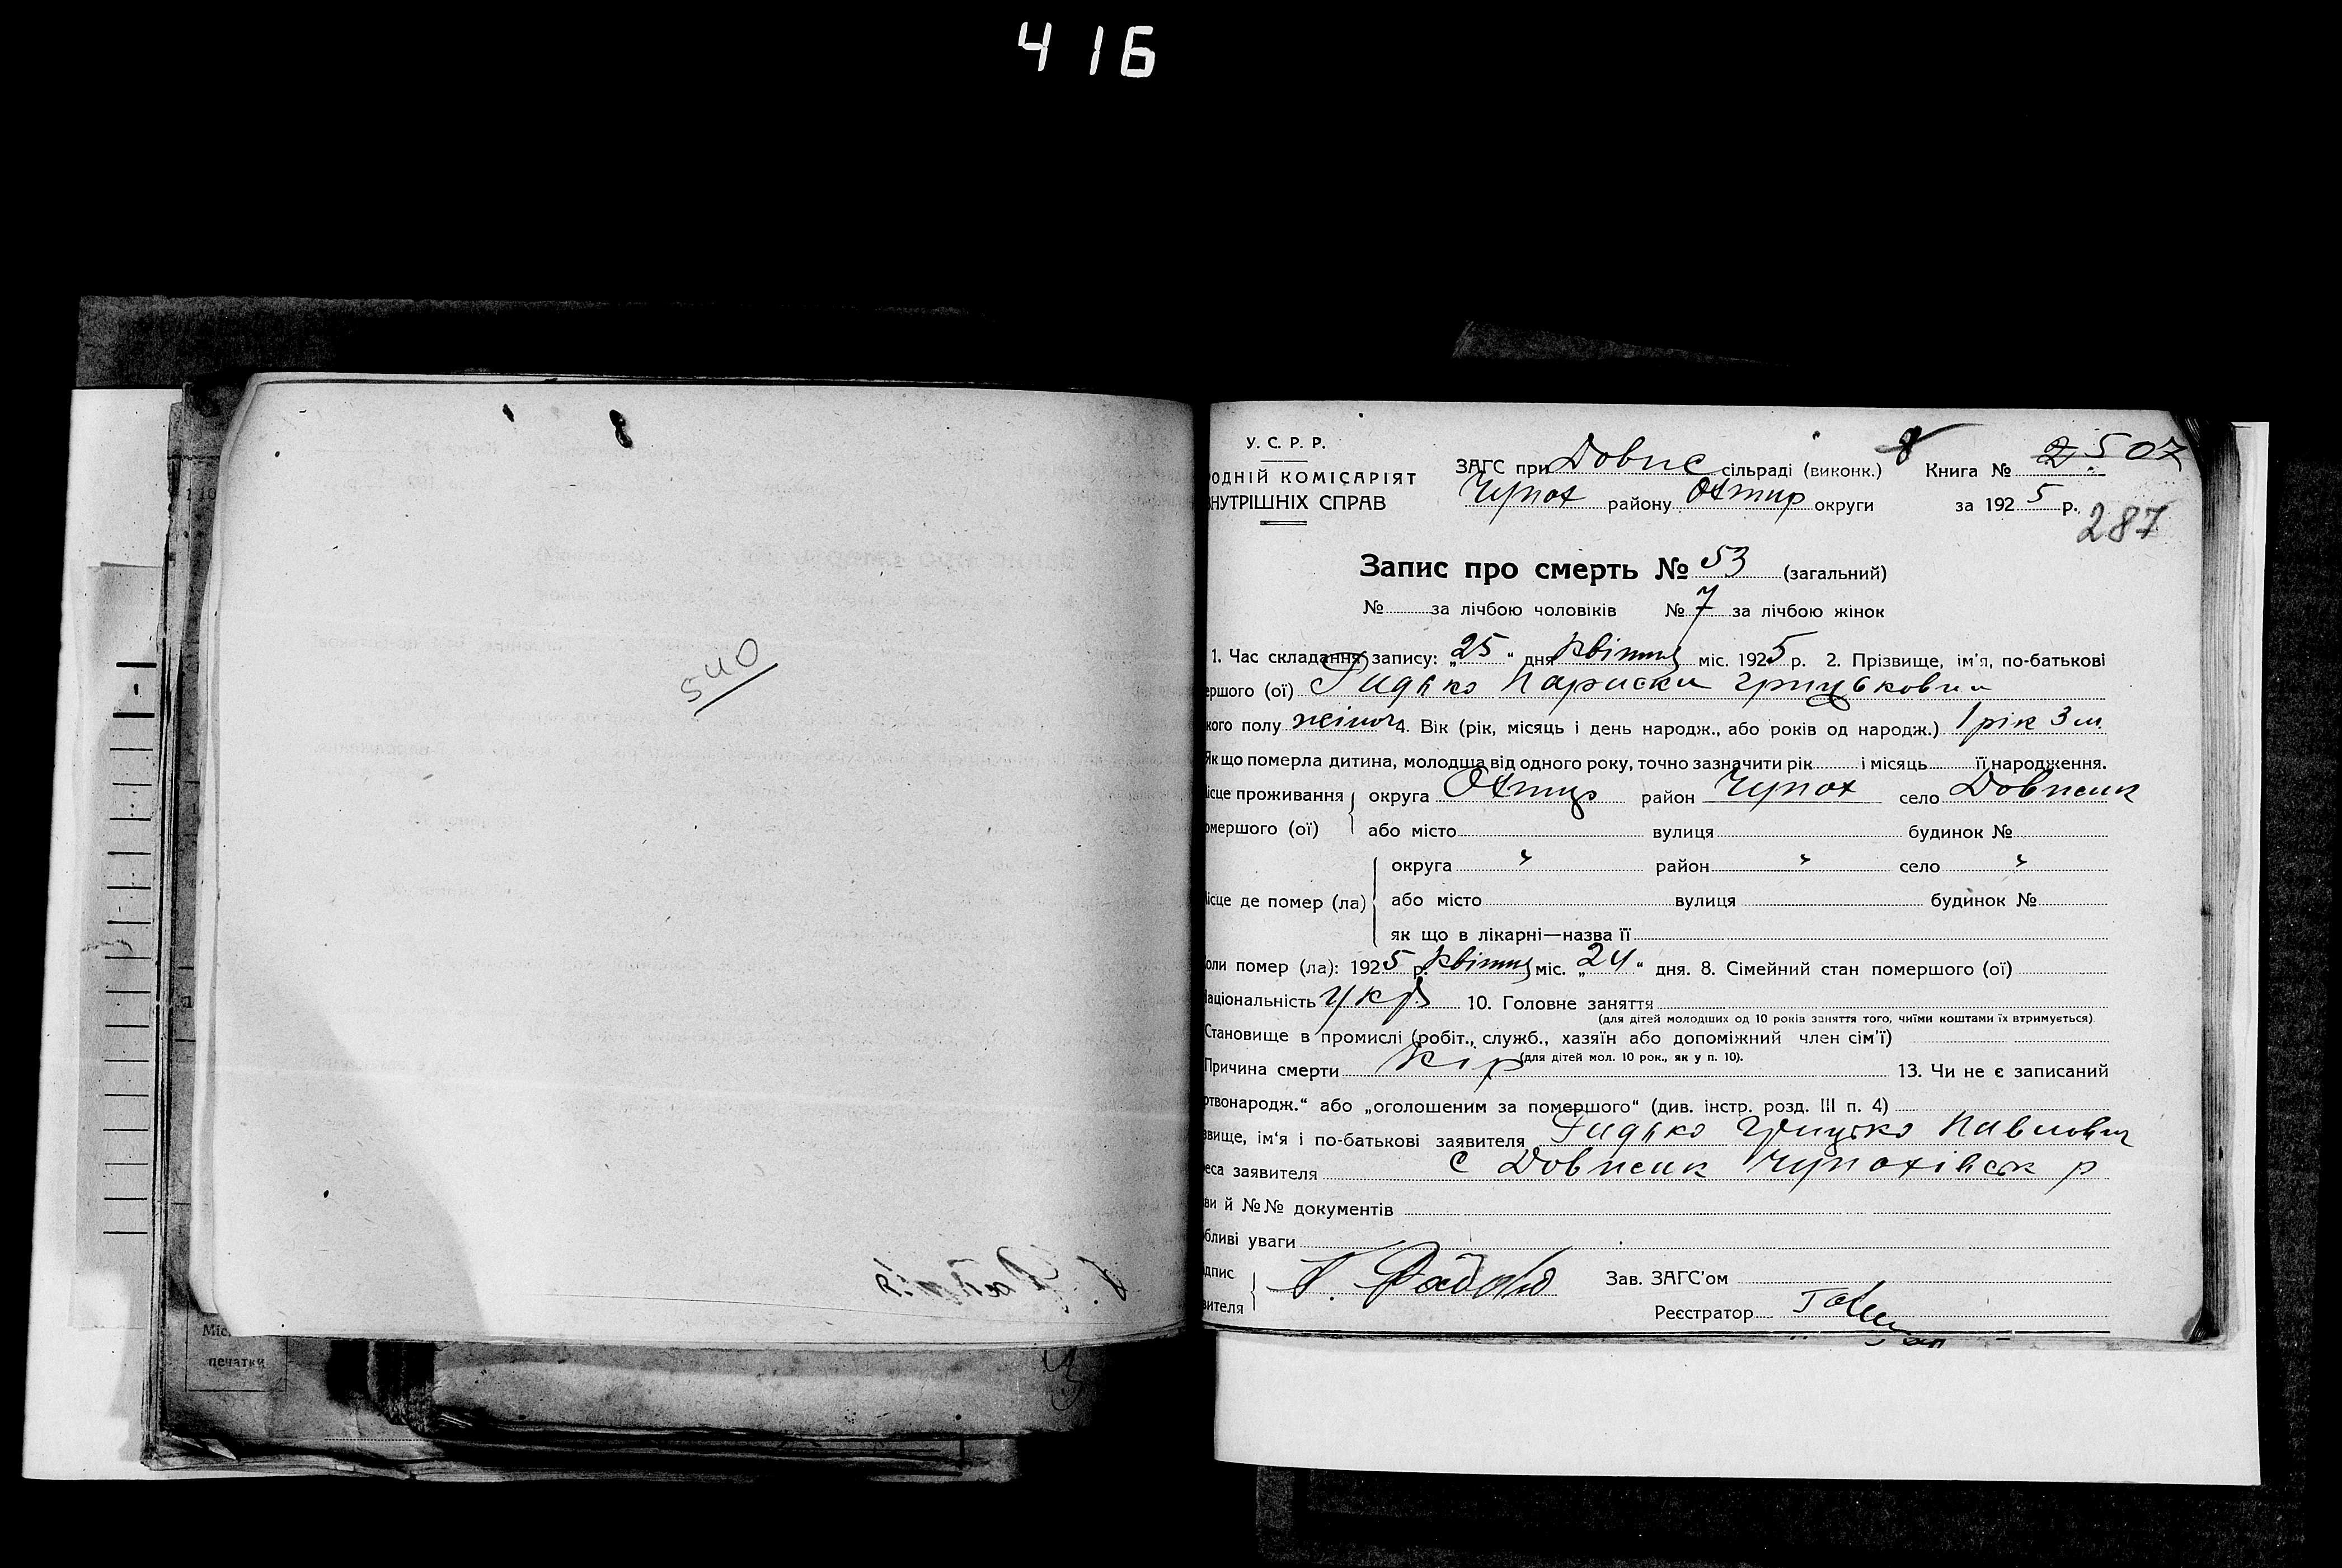 416
540
У. С. Р. Р.
ОДНІЙ КОМІСАРІЯТ
НУТРІШНІХ СПРАВ
ЗАГС при Довпс сільраді (виконк.) 8 Книга № 2507
Чупах району Охтир округи за 1925 р.
287
Запис про смерть № 53 (загальний)
№ за лічбою чоловіків № 7 за лічбою жінок
1. Час складання запису: „25“ дня Квітня міс. 1925 р. 2. Прізвище, ім'я, по-батькові
ершого (ої) Параски Грицьковни
кого полу жіноч 4. Вік (рік, місяць і день народж., або років од народж.) 1 рік 3 м.
Як що померла дитина, молодша від одного року, точно зазначити рік і місяць її народження.
ісце проживання округа Охтир район Чупах село Довпеик
омершого (ої) або місто вулиця будинок №
округа " район " село "
ісце де помер (ла) або місто вулиця будинок №
як що в лікарні—назва її
оли помер (ла): 1925 р. Квітня міс. „24“ дня. 8. Сімейний стан помершого (ої)
аціональність Укр. 10. Головне заняття
(для дітей молодших од 10 років заняття того, чиїми коштами їх втримується)
Становище в промислі (робіт., служб., хазяїн або допоміжний член сім'ї)
(для дітей мол. 10 рок., як у п. 10).
Причина смерти Кір 13. Чи не є записаний
ртвонародж.“ або „оголошеним за помершого“ (див. інстр. розд. III п. 4)
звище, ім'я і по-батькові заявителя Грицько Павлович
еса заявителя с Довпеик Чупахівск р
ви й №№ документів
бливі уваги
дпис
вителя
Зав. ЗАГС'ом
Реєстратор
Міс
печатки